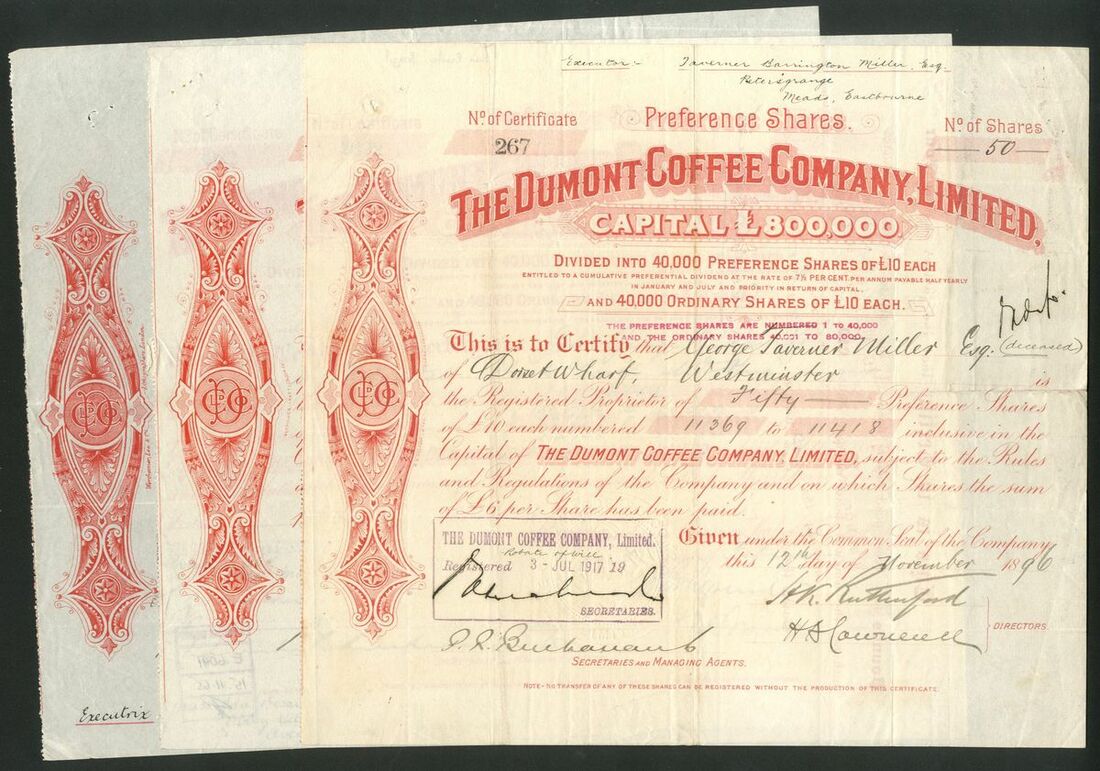 Executor:- Taverner Barrington Miller, Esq.
Petersgrange
Meads, Eastbourne
No. of Certificate
267
Preference Shares.
No. of Shares
50
THE DUMONT COFFEE COMPANY, LIMITED,
CAPITAL £800,000
DIVIDED INTO 40,000 PREFERENCE SHARES OF £10 EACH
ENTITLED TO A CUMULATIVE PREFERENTIAL DIVIDEND AT THE RATE OF 7½ PER CENT. PER ANNUM PAYABLE HALF YEARLY
IN JANUARY AND JULY AND PRIORITY IN RETURN OF CAPITAL.
AND 40,000 ORDINARY SHARES OF £10 EACH.
THE PREFERENCE SHARES ARE NUMBERED 1 TO 40,000
AND THE ORDINARY SHARES 40,001 TO 80,000.
This is to Certify that George Taverner Miller Esq. (deceased)
of Dorset Wharf, Westminster is
the Registered Proprietor of Fifty Preference Shares
of £10 each numbered 11369 to 11418 inclusive in the
Capital of THE DUMONT COFFEE COMPANY, LIMITED, subject to the Rules
and Regulations of the Company and on which Shares the sum
of £6 per Share has been paid.
Given under the Common Seal of the Company
this 12th day of November 1896
THE DUMONT COFFEE COMPANY, Limited.
Probate of Will
Registered 3 - JUL 1917 19
SECRETARIES.
H.K. Rutherford
DIRECTORS.
SECRETARIES AND MANAGING AGENTS.
NOTE-NO TRANSFER OF ANY OF THESE SHARES CAN BE REGISTERED WITHOUT THE PRODUCTION OF THIS CERTIFICATE.
Executrix